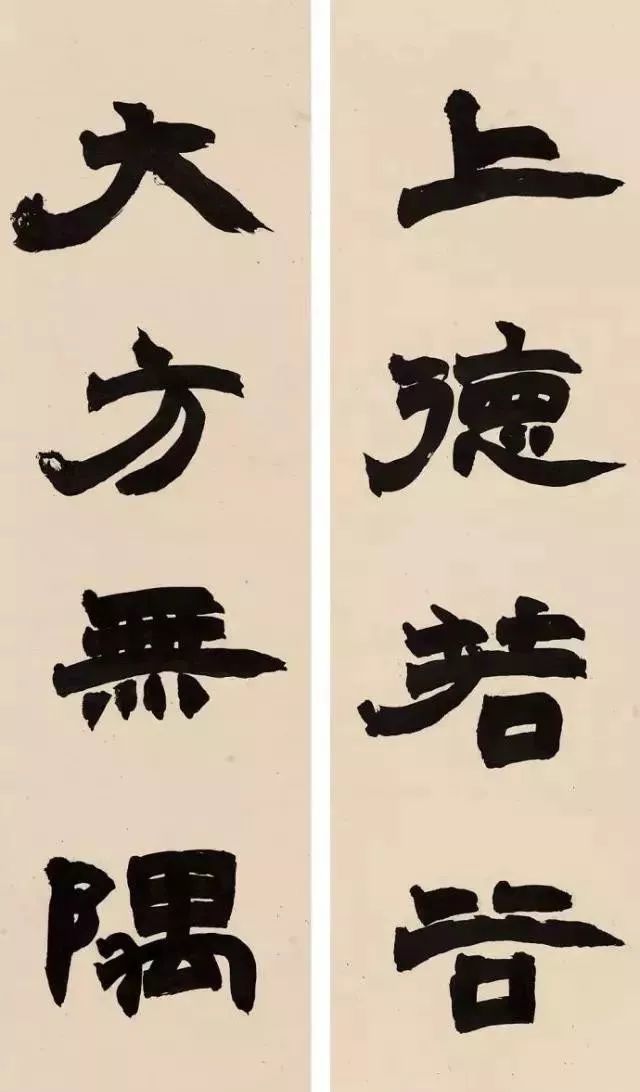 上德若谷
大方無隅